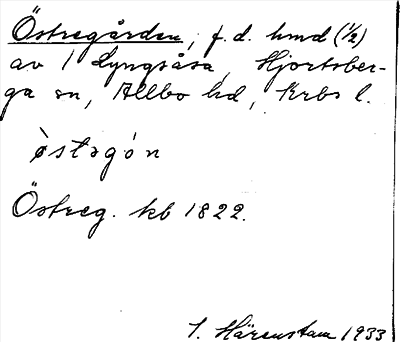 Östregården, f.d. hmd (1/2)
av 1 Lyngsåsa, Hjortsber-
ga sn, Allbo hd, Krbs l.
òstəgó̀n
Östreg. kb 1822.
I. Härenstam 1933